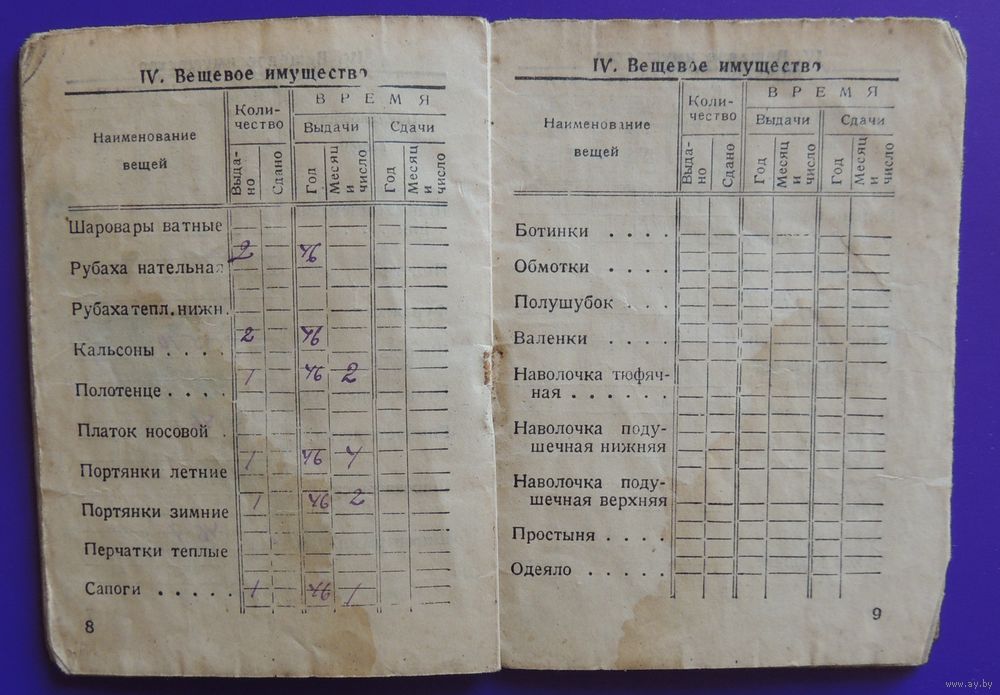 IV. Вещевое имущество
Наименование вещей
Количество
ВРЕМЯ
Выдачи
Сдачи
Выдано
Сдано
Год
Месяц и число
Год
Месяц и число
Шаровары ватные
Рубаха нательная 2 46
Рубаха тепл. нижн.
Кальсоны . . . . 2 46
Полотенце . . . . 1 46 2
Платок носовой .
Портянки летние 1 46
Портянки зимние 1 46 2
Перчатки теплые
Сапоги . . . . . 1 46 1
8
IV. Вещевое имущество
Наименование вещей
Количество
ВРЕМЯ
Выдачи
Сдачи
Выдано
Сдано
Год
Месяц и число
Год
Месяц и число
Ботинки . . . .
Обмотки . . . .
Полушубок . . .
Валенки . . . .
Наволочка тюфяч-
ная . . . . . .
Наволочка поду-
шечная нижняя
Наволочка поду-
шечная верхняя
Простыня . . . .
Одеяло . . . . .
9
www.ay.by